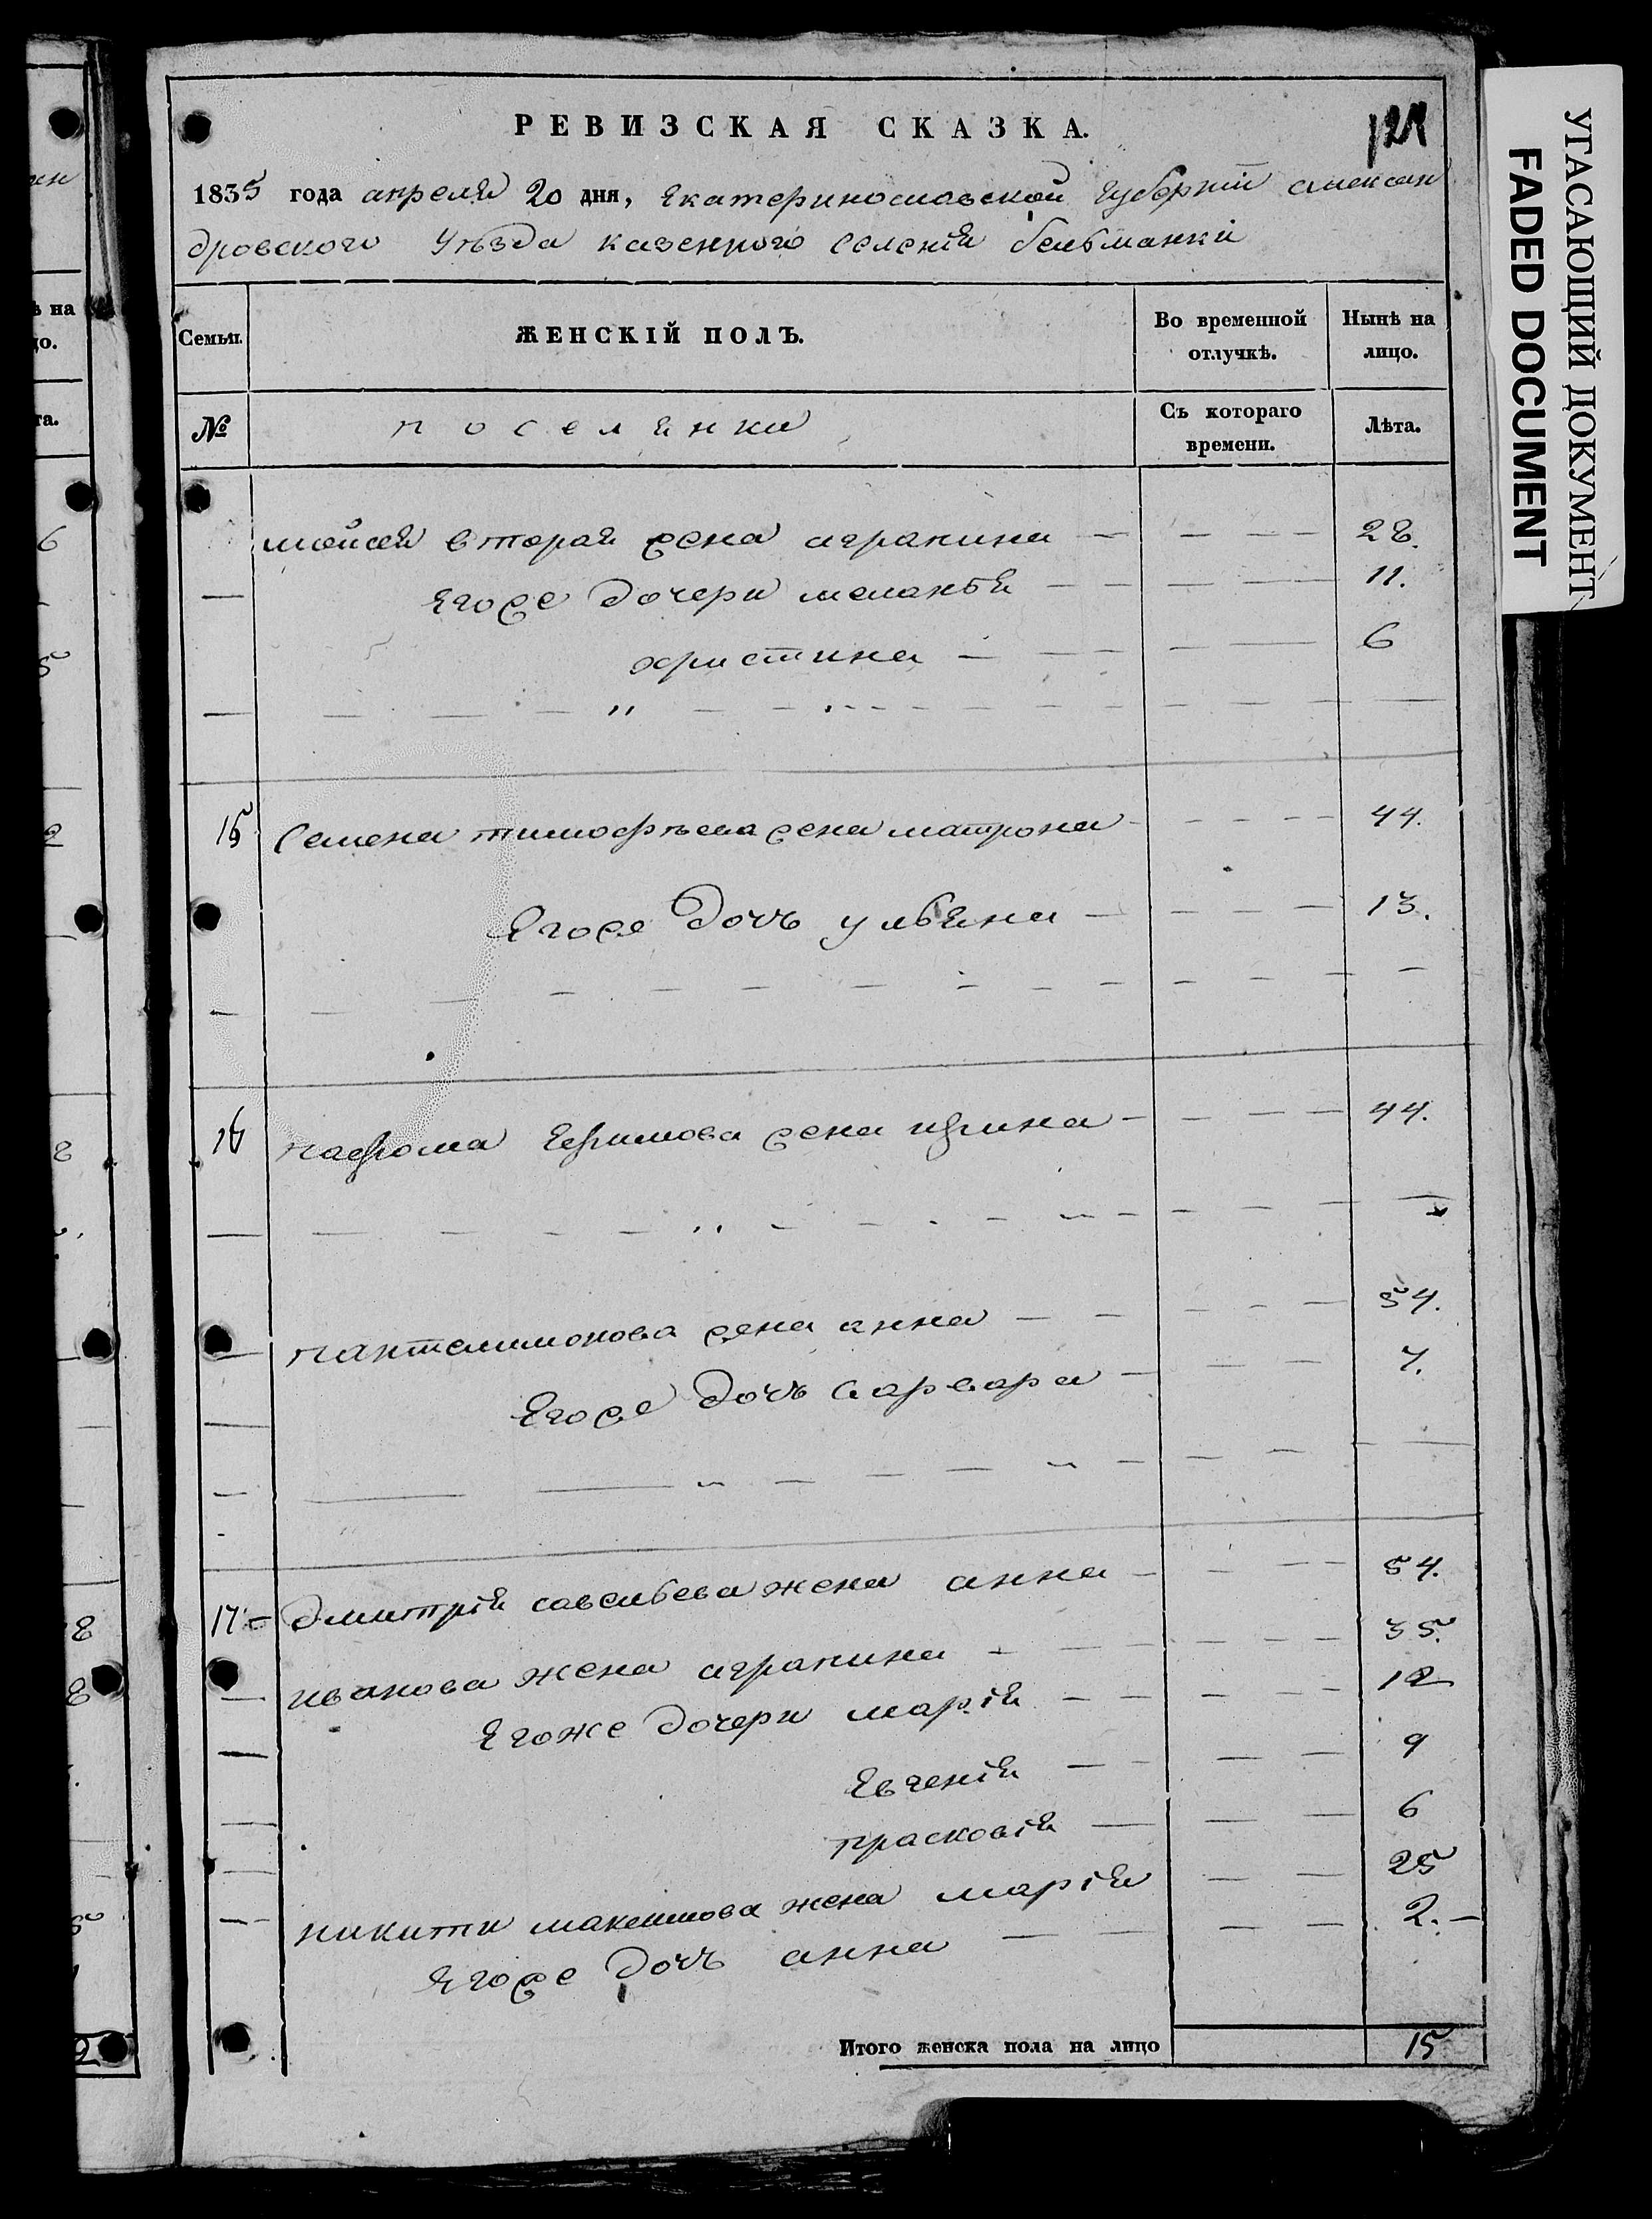 РЕВИЗСКАЯ СКАЗКА.
1835 года апреля 20 дня, Екатеринославской губернiи Алексан
дровского уѣзда казенного селенiя бельманки
Семьи.
ЖЕНСКIЙ ПОЛЪ.
Во временной отлучкѣ.
Нынѣ на лицо.
№
поселянки
Съ котораго времени.
Лѣта.
мойсея вторая жена аграпина 28.
Егоже дочери меланья 11.
христина 6
15 Семена тимофѣева жена матрона 44.
Егоже дочь ульяна 13.
16 пафрома Ефимова жена ирина 44.
пантелимонова жена анна 54.
Егоже дочь варвара 7.
17 дмитрiя савельева жена анна 54.
иванова жена аграпина 35.
Егоже дочери марiя 12
Евгенiя 9
прасковiя 6
никити максимова жена марiя 25
Егоже дочь анна 2.
Итого женска пола на лицо 15
УГАСАЮЩИЙ ДОКУМЕНТ
FADED DOCUMENT